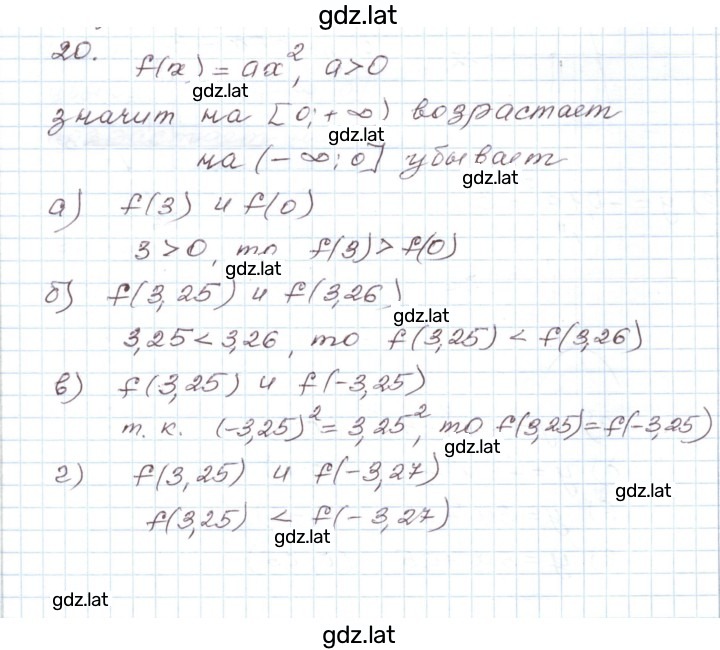 gdz.lat
20.
f(x) = ax², a>0
gdz.lat
значит на [0; +∞) возрастает
gdz.lat
на (-∞; 0] убывает
gdz.lat
а) f(3) и f(0)
3 > 0, то f(3) > f(0)
gdz.lat
б) f(3,25) и f(3,26)
gdz.lat
3,25 < 3,26, то f(3,25) < f(3,26)
в) f(3,25) и f(-3,25)
т. к. (-3,25)² = 3,25², то f(3,25) = f(-3,25)
gdz.lat
г) f(3,25) и f(-3,27)
gdz.lat
f(3,25) < f(-3,27)
gdz.lat
gdz.lat
gdz.lat